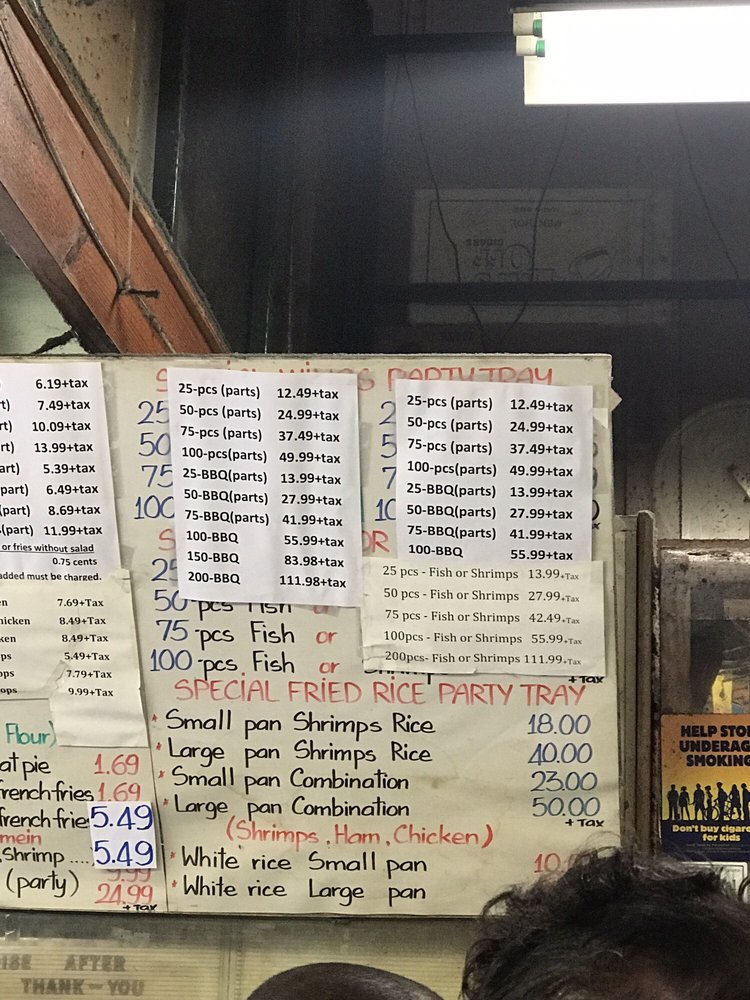 6.19+tax
7.49+tax
10.09+tax
13.99+tax
5.39+tax
part) 6.49+tax
part) 8.69+tax
(part) 11.99+tax
or fries without salad
0.75 cents
added must be charged.
7.69+Tax
8.49+Tax
8.49+Tax
5.49+Tax
7.79+Tax
9.99+Tax
Flour)
pie 1.69
french fries 1.69
french frie 5.49
mein
Shrimp .... 5.49
9.99
(party) 24.99
+ Tax
PARTY TRAY
25
50
75
100
25-pcs (parts) 12.49+tax
50-pcs (parts) 24.99+tax
75-pcs (parts) 37.49+tax
100-pcs(parts) 49.99+tax
25-BBQ(parts) 13.99+tax
50-BBQ(parts) 27.99+tax
75-BBQ(parts) 41.99+tax
100-BBQ 55.99+tax
150-BBQ 83.98+tax
200-BBQ 111.98+tax
25-pcs (parts) 12.49+tax
50-pcs (parts) 24.99+tax
75-pcs (parts) 37.49+tax
100-pcs(parts) 49.99+tax
25-BBQ(parts) 13.99+tax
50-BBQ(parts) 27.99+tax
75-BBQ(parts) 41.99+tax
100-BBQ 55.99+tax
25 pcs - Fish or Shrimps 13.99+Tax
50 pcs - Fish or Shrimps 27.99+Tax
75 pcs - Fish or Shrimps 42.49+Tax
100pcs - Fish or Shrimps 55.99+Tax
200pcs- Fish or Shrimps 111.99+Tax
OR
25
50-pcs Fish or
75-pcs Fish or
100-pcs Fish or Shrimps
+ Tax
SPECIAL FRIED RICE PARTY TRAY
* Small pan Shrimps Rice 18.00
* Large pan Shrimps Rice 40.00
* Small pan Combination 23.00
* Large pan Combination 50.00
+ Tax
(Shrimps, Ham, Chicken)
* White rice Small pan
* White rice Large pan
HELP STOP
UNDERAG
SMOKING
Don't buy cigare
for kids
AFTER
THANK-YOU